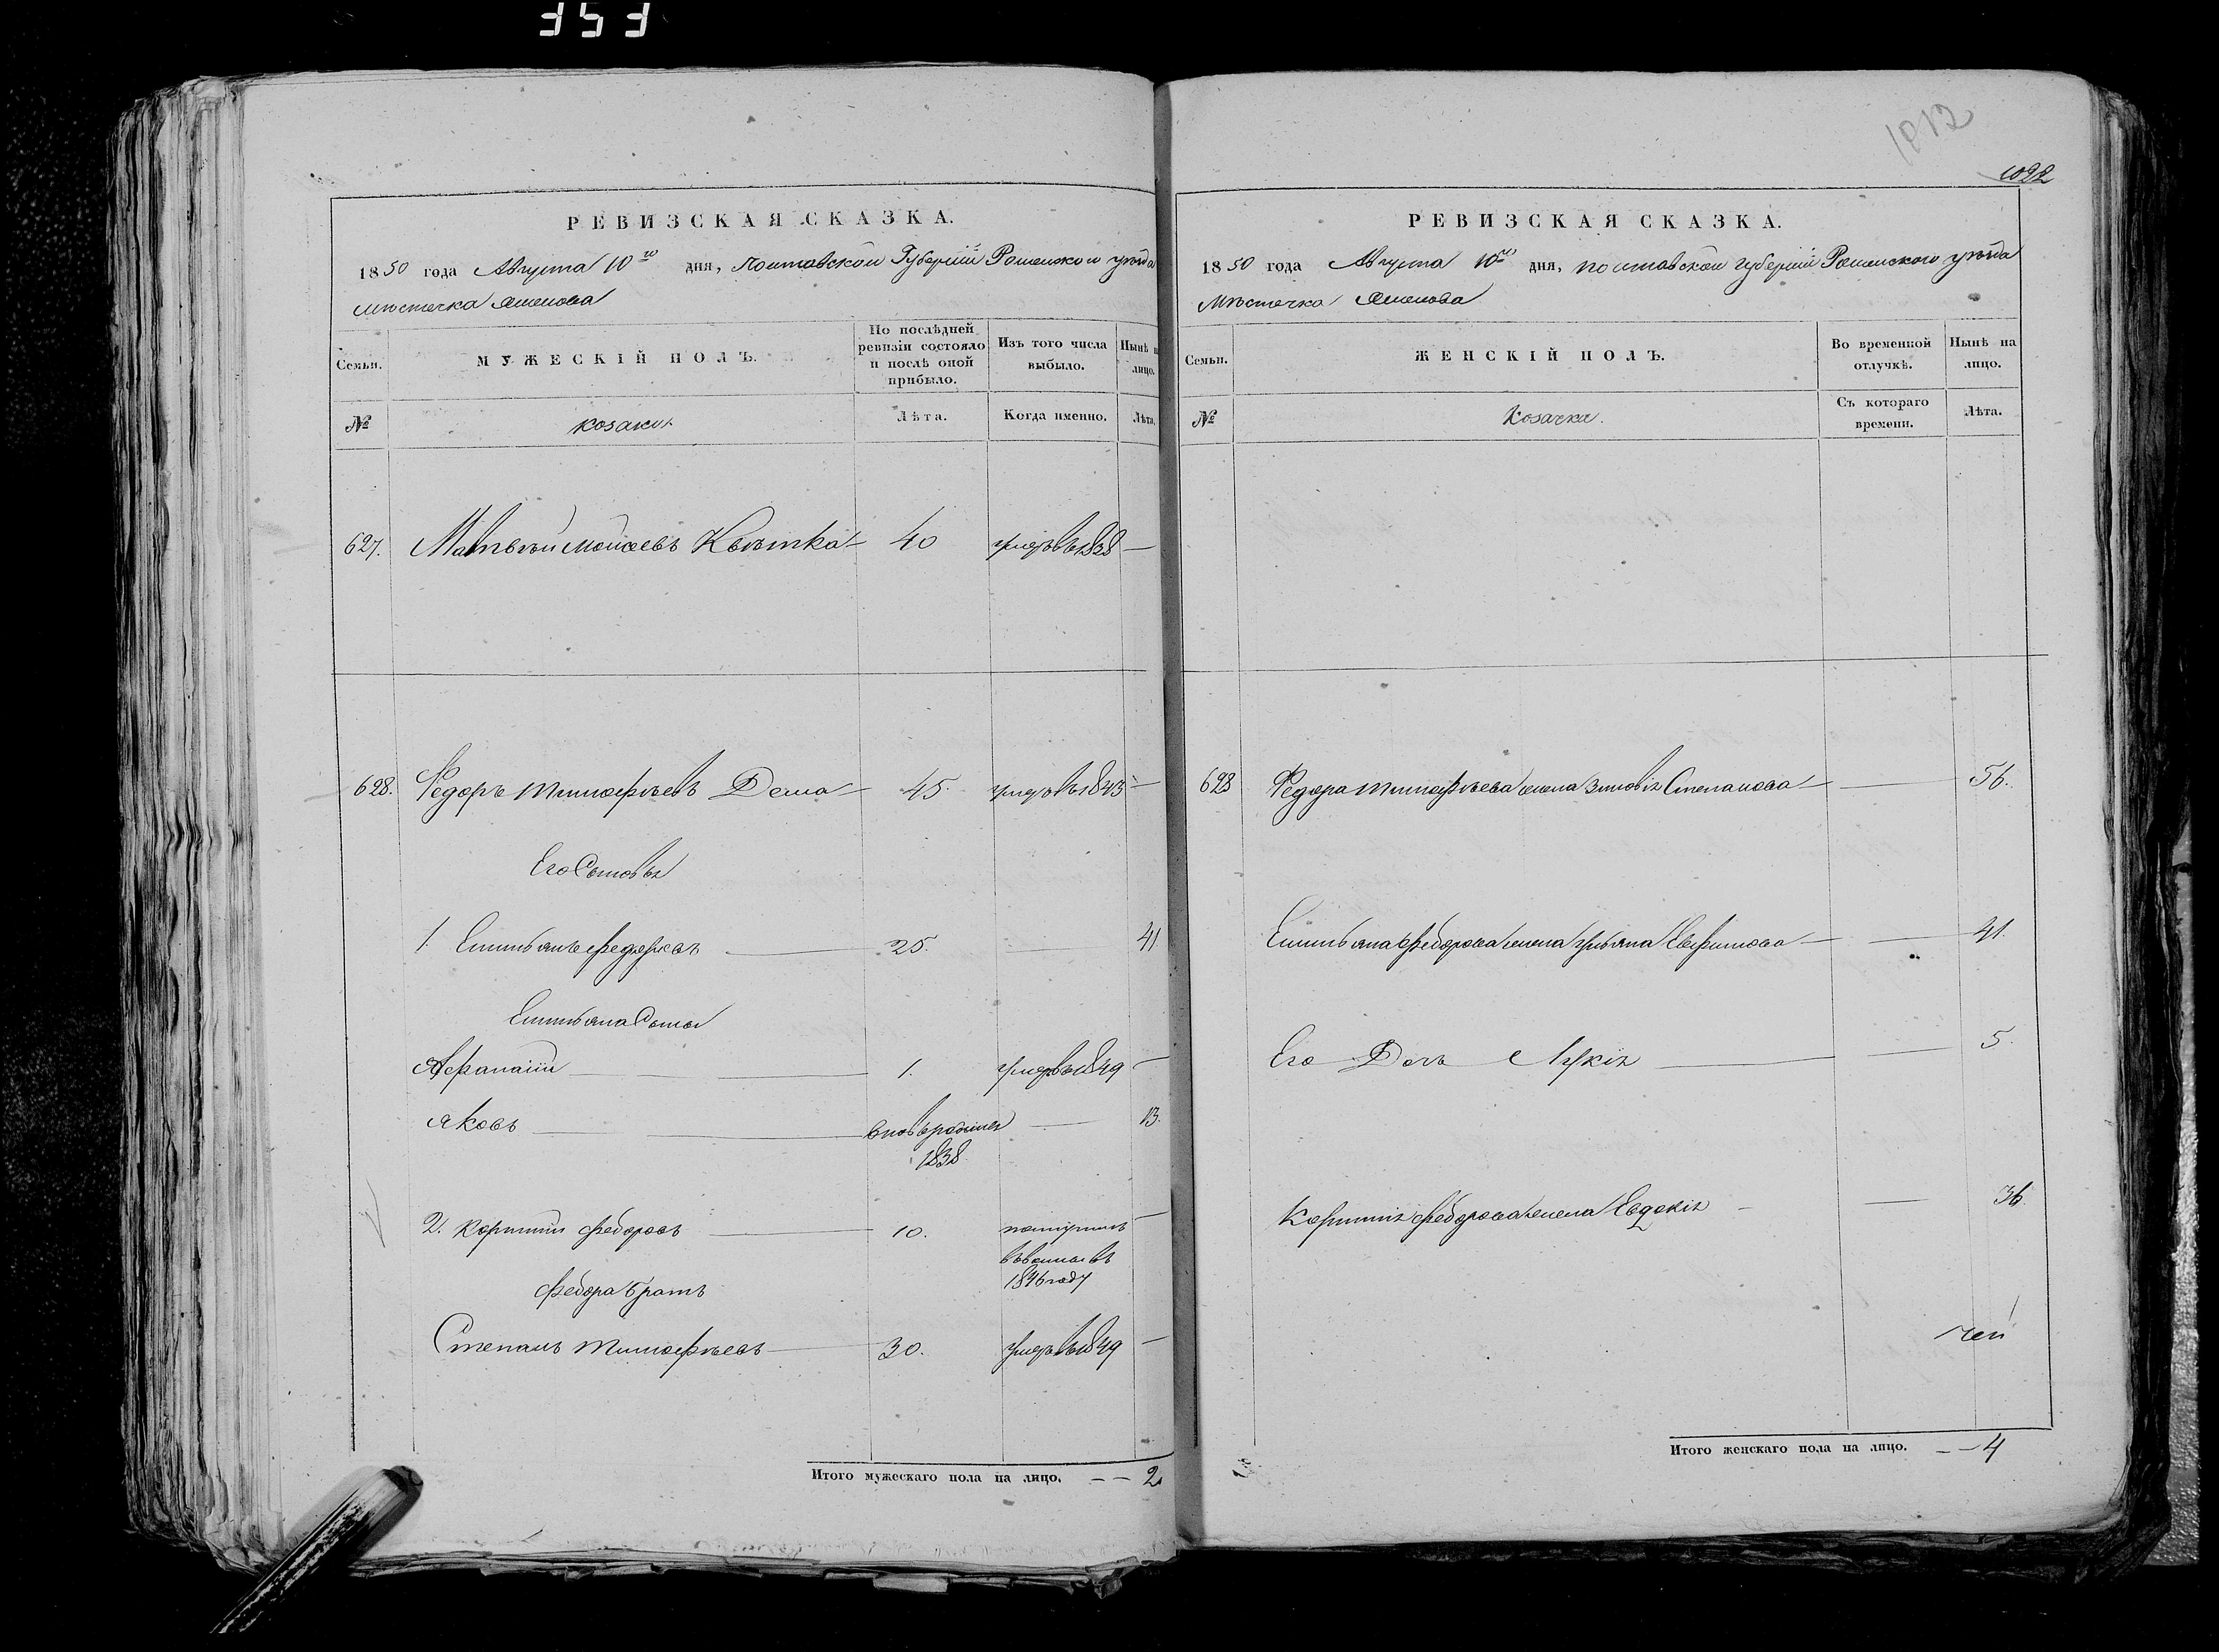 353
РЕВИЗСКАЯ СКАЗКА.
1850 года Августа 10го дня, Полтавской Губернии Роменского уѣзда
мѣстечка
Семьи.
МУЖЕСКІЙ ПОЛЪ.
По послѣдней ревизіи состояло и послѣ оной прибыло.
Изъ того числа выбыло.
Нынѣ н лицо.
№
козаки.
Лѣта.
Когда именно.
Лѣта.
627. Матвѣй Моисеевъ Квѣтка 40 умеръ въ 1838 —
628. Федоръ Тимофѣевъ Дема 45. умеръ въ 1843 —
Его Сыновья
1. Емельянъ Федоровъ 25. 41
Емельяна Сыны
Афанасій 1. умеръ въ 1849 —
Яковъ вновь рожденъ 13.
1838
2. Корнилій Федоровъ 10. поступилъ —
1846 году
Федора братъ
Степанъ Тимофѣевъ 30. умеръ въ 1849 —
Итого мужескаго пола на лицо. — — 2
1012
1022
РЕВИЗСКАЯ СКАЗКА.
1850 года Августа 10го дня, Полтавской Губернии Роменского уѣзда
Мѣстечка
Семьи.
ЖЕНСКІЙ ПОЛЪ.
Во временной отлучкѣ.
Нынѣ на лицо.
№
Козачки.
Съ котораго времени.
Лѣта.
628 Федора Тимофѣева жена Зиновія Степанова — 56.
Емельяна Федорова жена Ульяна Евфимова — 41.
Его Дочь Лукія 5.
Корнилія Федорова жена Евдокія — 36.
Итого женскаго пола на лицо. — — 4